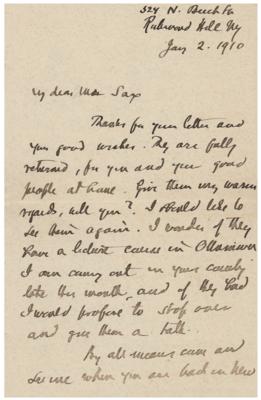 524 N. Beech St
Richmond Hill Ny
Jan 2. 1910
My dear Max Sax
Thanks for your letter and
your good wishes. They are fully
returned, for you and your good
people at home. Give them my warm
regards, will you? I should like to
see them again. I wonder if they
have a lecture course in Ottumwa
I am coming out in your country
late this month, and if they had
I would propose to stop over
and give them a talk.
By all means come and
see me when you are back in here